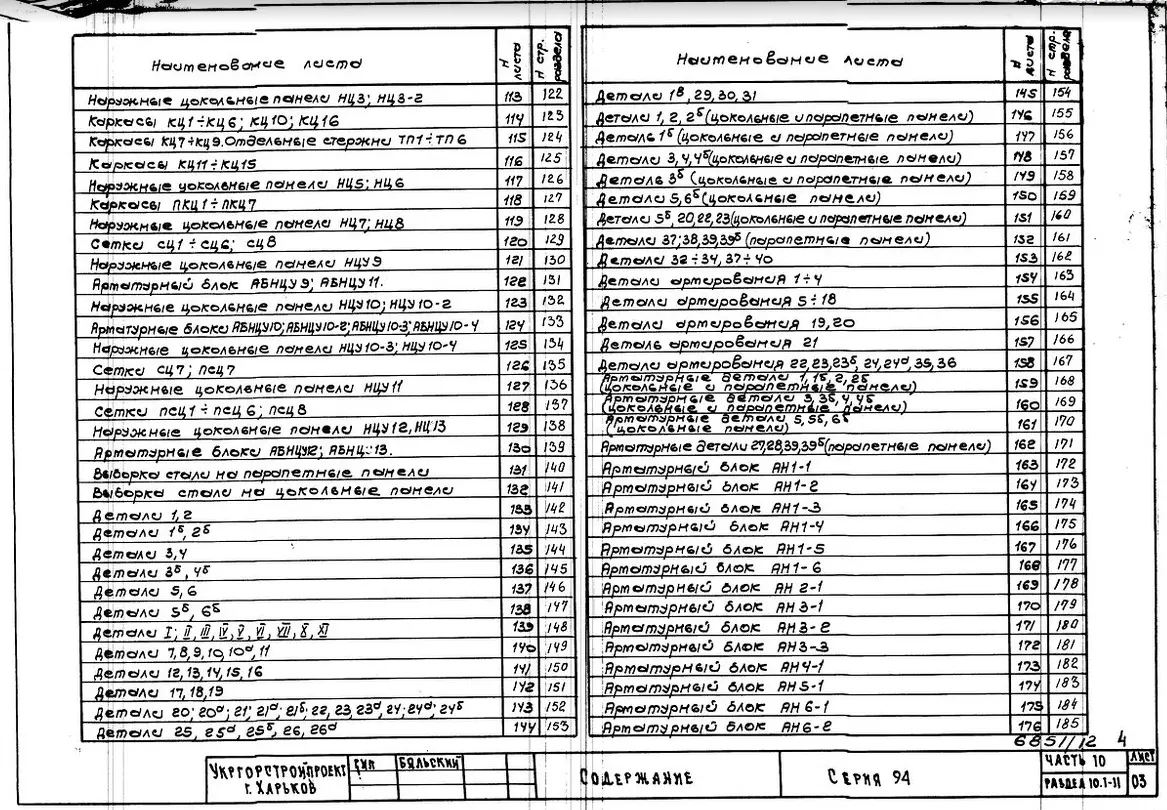 Наименование листа N листа N стр. раздела
Наружные цокольные панели НЦ3; НЦ3-2 113 122
Каркасы КЦ1÷КЦ6; КЦ10; КЦ16 114 123
Каркасы КЦ7÷КЦ9. Отдельные стержни ТП1÷ТП6 115 124
Каркасы КЦ11÷КЦ15 116 125
Наружные цокольные панели НЦ5; НЦ6 117 126
Каркасы ПКЦ1÷ПКЦ7 118 127
Наружные цокольные панели НЦ7; НЦ8 119 128
Сетки СЦ1÷СЦ6; СЦ8 120 129
Наружные цокольные панели НЦУ9 121 130
Арматурный блок АБНЦУ9; АБНЦУ11. 122 131
Наружные цокольные панели НЦУ10; НЦУ10-2 123 132
Арматурные блоки АБНЦУ10; АБНЦУ10-2; АБНЦУ10-3; АБНЦУ10-4 124 133
Наружные цокольные панели НЦУ10-3; НЦУ10-4 125 134
Сетки СЦ7; ПСЦ7 126 135
Наружные цокольные панели НЦУ11 127 136
Сетки ПСЦ1÷ПСЦ6; ПСЦ8 128 137
Наружные цокольные панели НЦУ12, НЦ13 129 138
Арматурные блоки АБНЦУ12; АБНЦ-13. 130 139
Выборка стали на парапетные панели 131 140
Выборка стали на цокольные панели 132 141
Детали 1,2 133 142
Детали 1б, 2б 134 143
Детали 3,4 135 144
Детали 3б, 4б 136 145
Детали 5,6 137 146
Детали 5б, 6б 138 147
Детали I; II, III, IV, V, VI, VII, X, XI 139 148
Детали 7,8,9,10,10а,11 140 149
Детали 12,13,14,15,16 141 150
Детали 17,18,19 142 151
Детали 20; 20а; 21; 21а; 21б; 22, 23, 23а, 24; 24а; 24б 143 152
Детали 25, 25а, 25б, 26, 26а 144 153
Наименование листа N листа N стр. раздела
Детали 1в, 29, 30, 31 145 154
Детали 1, 2, 2б (цокольные и парапетные панели) 146 155
Деталь 1б (цокольные и парапетные панели) 147 156
Детали 3,4,4б (цокольные и парапетные панели) 148 157
Деталь 3б (цокольные и парапетные панели) 149 158
Детали 5,6б (цокольные панели) 150 159
Детали 5б, 20,22,23 (цокольные и парапетные панели) 151 160
Детали 37;38,39,39б (парапетные панели) 152 161
Детали 32÷34, 37÷40 153 162
Детали армирования 1÷4 154 163
Детали армирования 5÷18 155 164
Детали армирования 19,20 156 165
Деталь армирования 21 157 166
Детали армирования 22,23,23б, 24,24а, 35,36 158 167
Арматурные детали 1, 1б, 2, 2б
(цокольные и парапетные панели) 159 168
Арматурные детали 3, 3б, 4, 4б
(цокольные и парапетные панели) 160 169
Арматурные детали 5, 5б, 6б
(цокольные панели) 161 170
Арматурные детали 27,28,39,39б (парапетные панели) 162 171
Арматурный блок АН1-1 163 172
Арматурный блок АН1-2 164 173
Арматурный блок АН1-3 165 174
Арматурный блок АН1-4 166 175
Арматурный блок АН1-5 167 176
Арматурный блок АН1-6 168 177
Арматурный блок АН2-1 169 178
Арматурный блок АН3-1 170 179
Арматурный блок АН3-2 171 180
Арматурный блок АН3-3 172 181
Арматурный блок АН4-1 173 182
Арматурный блок АН5-1 174 183
Арматурный блок АН6-1 175 184
Арматурный блок АН6-2 176 185
6851/12 4
Укргорстройпроект
г. Харьков
ГИП Бяльский
Содержание
Серия 94
Часть 10
Раздел 10.1-11
Лист
03